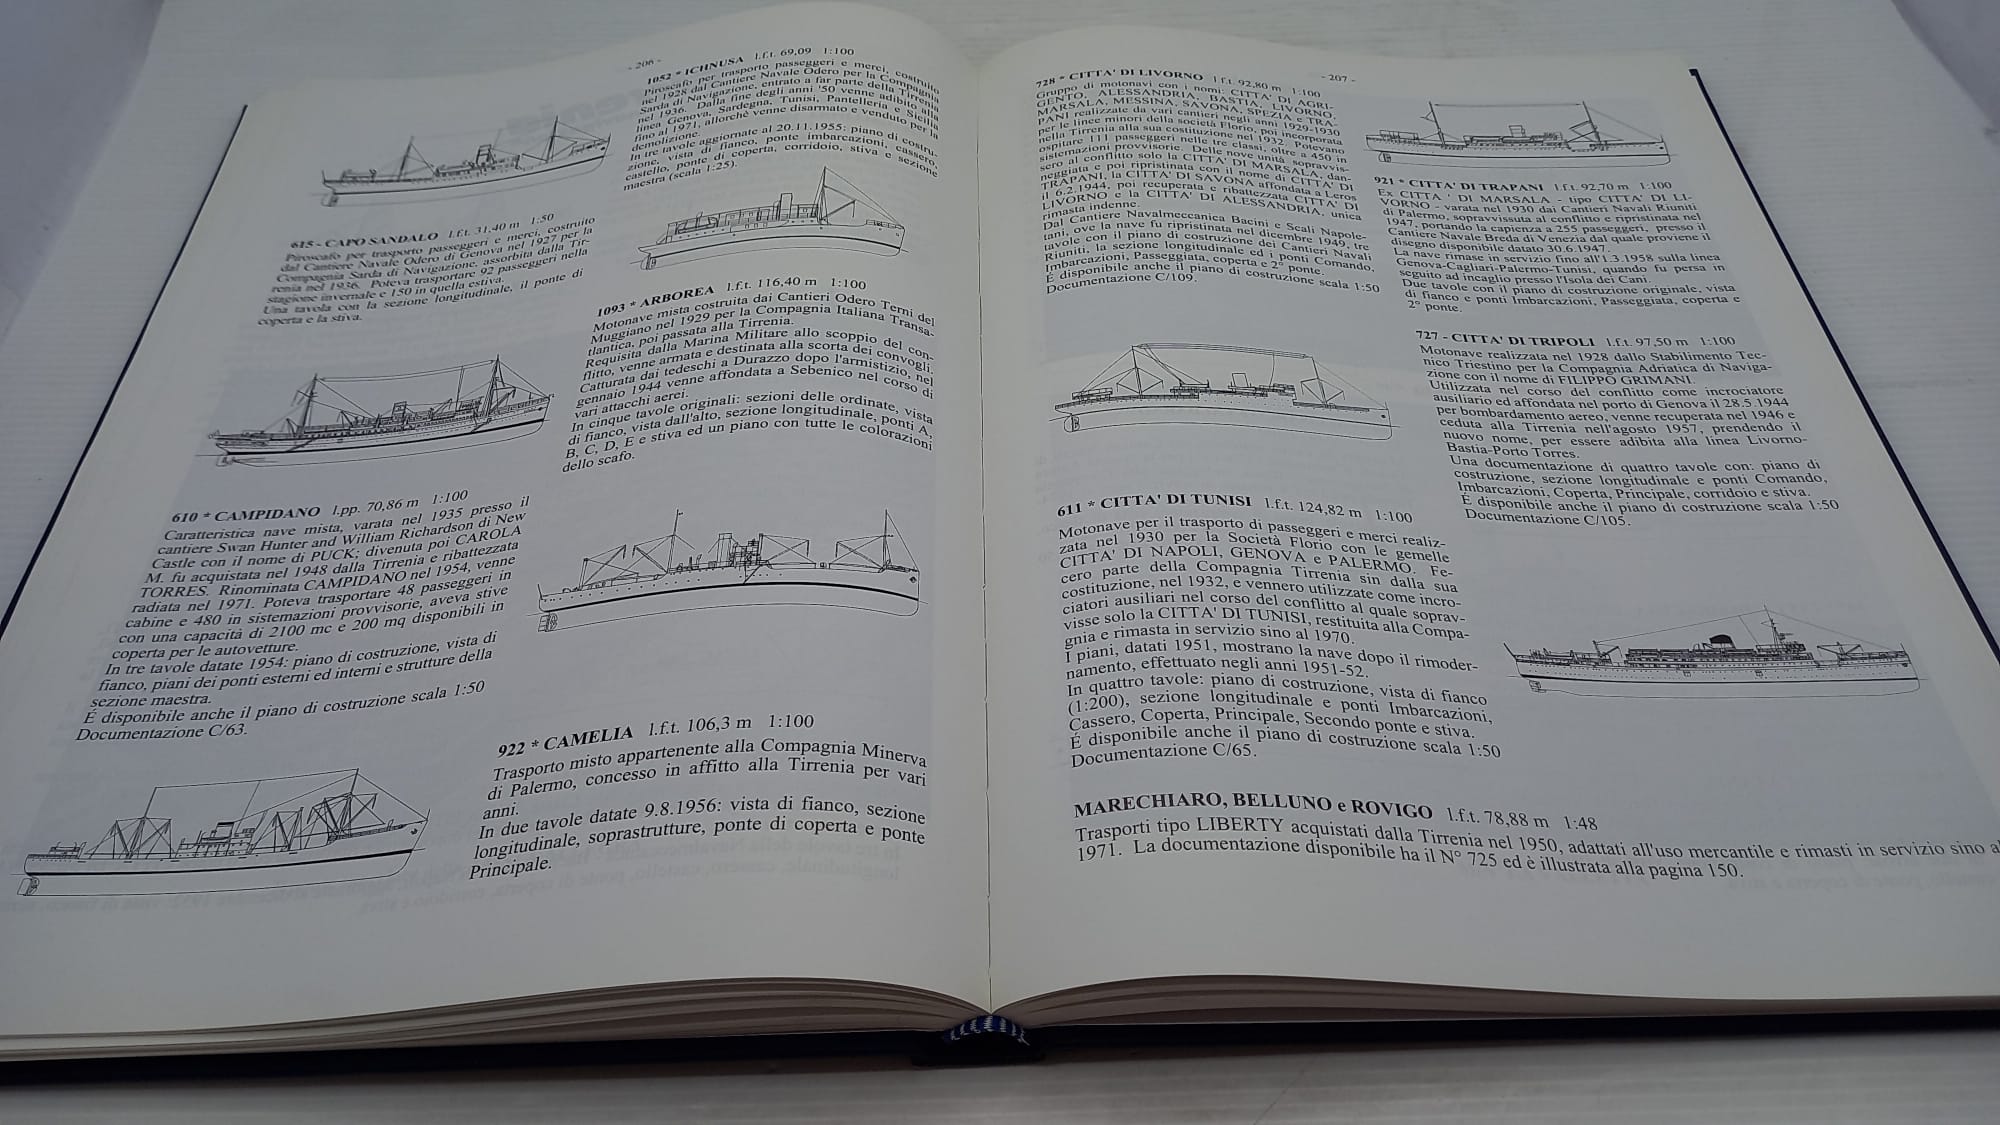 - 206 -
1052 * ICHNUSA l.f.t. 69,09 1:100
Piroscafo per trasporto passeggeri e merci, costruito
nel 1928 dal Cantiere Navale Odero per la Compagnia
Sarda di Navigazione, entrato a far parte della Tirrenia
nel 1936. Dalla fine degli anni '50 venne adibito alla
linea Genova, Sardegna, Tunisi, Pantelleria e Sicilia
fino al 1971, allorchè venne disarmato e venduto per la
demolizione.
In tre tavole aggiornate al 20.11.1955: piano di costru-
zione, vista di fianco, ponte imbarcazioni, cassero,
castello, ponte di coperta, corridoio, stiva e sezione
maestra (scala 1:25).
615 - CAPO SANDALO l.f.t. 31,40 m 1:50
Piroscafo per trasporto passeggeri e merci, costruito
dal Cantiere Navale Odero di Genova nel 1927 per la
Compagnia Sarda di Navigazione, assorbita dalla Tir-
renia nel 1936. Poteva trasportare 92 passeggeri nella
stagione invernale e 150 in quella estiva.
Una tavola con la sezione longitudinale, il ponte di
coperta e la stiva.
1093 * ARBOREA l.f.t. 116,40 m 1:100
Motonave mista costruita dai Cantieri Odero Terni del
Muggiano nel 1929 per la Compagnia Italiana Transa-
tlantica, poi passata alla Tirrenia.
Requisita dalla Marina Militare allo scoppio del con-
flitto, venne armata e destinata alla scorta dei convogli.
Catturata dai tedeschi a Durazzo dopo l'armistizio, nel
gennaio 1944 venne affondata a Sebenico nel corso di
vari attacchi aerei.
In cinque tavole originali: sezioni delle ordinate, vista
di fianco, vista dall'alto, sezione longitudinale, ponti A,
B, C, D, E e stiva ed un piano con tutte le colorazioni
dello scafo.
610 * CAMPIDANO l.pp. 70,86 m 1:100
Caratteristica nave mista, varata nel 1935 presso il
cantiere Swan Hunter and William Richardson di New
Castle con il nome di PUCK; divenuta poi CAROLA
M. fu acquistata nel 1948 dalla Tirrenia e ribattezzata
TORRES. Rinominata CAMPIDANO nel 1954, venne
radiata nel 1971. Poteva trasportare 48 passeggeri in
cabine e 480 in sistemazioni provvisorie, aveva stive
con una capacità di 2100 mc e 200 mq disponibili in
coperta per le autovetture.
In tre tavole datate 1954: piano di costruzione, vista di
fianco, piani dei ponti esterni ed interni e strutture della
sezione maestra.
É disponibile anche il piano di costruzione scala 1:50
Documentazione C/63.
922 * CAMELIA l.f.t. 106,3 m 1:100
Trasporto misto appartenente alla Compagnia Minerva
di Palermo, concesso in affitto alla Tirrenia per vari
anni.
In due tavole datate 9.8.1956: vista di fianco, sezione
longitudinale, soprastrutture, ponte di coperta e ponte
Principale.
- 207 -
728 * CITTA' DI LIVORNO l.f.t. 92,80 m 1:100
Gruppo di motonavi con i nomi: CITTA' DI AGRI-
GENTO, ALESSANDRIA, BASTIA, LIVORNO,
MARSALA, MESSINA, SAVONA, SPEZIA e TRA-
PANI realizzate da vari cantieri negli anni 1929-1930
per le linee minori della società Florio, poi incorporata
nella Tirrenia alla sua costituzione nel 1932. Potevano
ospitare 111 passeggeri nelle tre classi, oltre a 450 in
sistemazioni provvisorie. Delle nove unità sopravvis-
sero al conflitto solo la CITTA' DI MARSALA, dan-
neggiata e poi ripristinata con il nome di CITTA' DI
TRAPANI, la CITTA' DI SAVONA affondata a Leros
il 6.2.1944, poi recuperata e ribattezzata CITTA' DI
LIVORNO e la CITTA' DI ALESSANDRIA, unica
rimasta indenne.
Dal Cantiere Navalmeccanica Bacini e Scali Napole-
tani, ove la nave fu ripristinata nel dicembre 1949, tre
tavole con il piano di costruzione dei Cantieri Navali
Riuniti, la sezione longitudinale ed i ponti Comando,
Imbarcazioni, Passeggiata, coperta e 2° ponte.
É disponibile anche il piano di costruzione scala 1:50
Documentazione C/109.
921 * CITTA' DI TRAPANI l.f.t. 92,70 m 1:100
Ex CITTA ' DI MARSALA - tipo CITTA' DI LI-
VORNO - varata nel 1930 dai Cantieri Navali Riuniti
di Palermo, sopravvissuta al conflitto e ripristinata nel
1947, portando la capienza a 255 passeggeri, presso il
Cantiere Navale Breda di Venezia dal quale proviene il
disegno disponibile datato 30.6.1947.
La nave rimase in servizio fino all'1.3.1958 sulla linea
Genova-Cagliari-Palermo-Tunisi, quando fu persa in
seguito ad incaglio presso l'Isola dei Cani.
Due tavole con il piano di costruzione originale, vista
di fianco e ponti Imbarcazioni, Passeggiata, coperta e
2° ponte.
727 - CITTA' DI TRIPOLI l.f.t. 97,50 m 1:100
Motonave realizzata nel 1928 dallo Stabilimento Tec-
nico Triestino per la Compagnia Adriatica di Naviga-
zione con il nome di FILIPPO GRIMANI.
Utilizzata nel corso del conflitto come incrociatore
ausiliario ed affondata nel porto di Genova il 28.5.1944
per bombardamento aereo, venne recuperata nel 1946 e
ceduta alla Tirrenia nell'agosto 1957, prendendo il
nuovo nome, per essere adibita alla linea Livorno-
Bastia-Porto Torres.
Una documentazione di quattro tavole con: piano di
costruzione, sezione longitudinale e ponti Comando,
Imbarcazioni, Coperta, Principale, corridoio e stiva.
É disponibile anche il piano di costruzione scala 1:50
Documentazione C/105.
611 * CITTA' DI TUNISI l.f.t. 124,82 m 1:100
Motonave per il trasporto di passeggeri e merci realiz-
zata nel 1930 per la Società Florio con le gemelle
CITTA' DI NAPOLI, GENOVA e PALERMO. Fe-
cero parte della Compagnia Tirrenia sin dalla sua
costituzione, nel 1932, e vennero utilizzate come incro-
ciatori ausiliari nel corso del conflitto al quale soprav-
visse solo la CITTA' DI TUNISI, restituita alla Compa-
gnia e rimasta in servizio sino al 1970.
I piani, datati 1951, mostrano la nave dopo il rimoder-
namento, effettuato negli anni 1951-52.
In quattro tavole: piano di costruzione, vista di fianco
(1:200), sezione longitudinale e ponti Imbarcazioni,
Cassero, Coperta, Principale, Secondo ponte e stiva.
É disponibile anche il piano di costruzione scala 1:50
Documentazione C/65.
MARECHIARO, BELLUNO e ROVIGO l.f.t. 78,88 m 1:48
Trasporti tipo LIBERTY acquistati dalla Tirrenia nel 1950, adattati all'uso mercantile e rimasti in servizio sino al
1971. La documentazione disponibile ha il N° 725 ed è illustrata alla pagina 150.